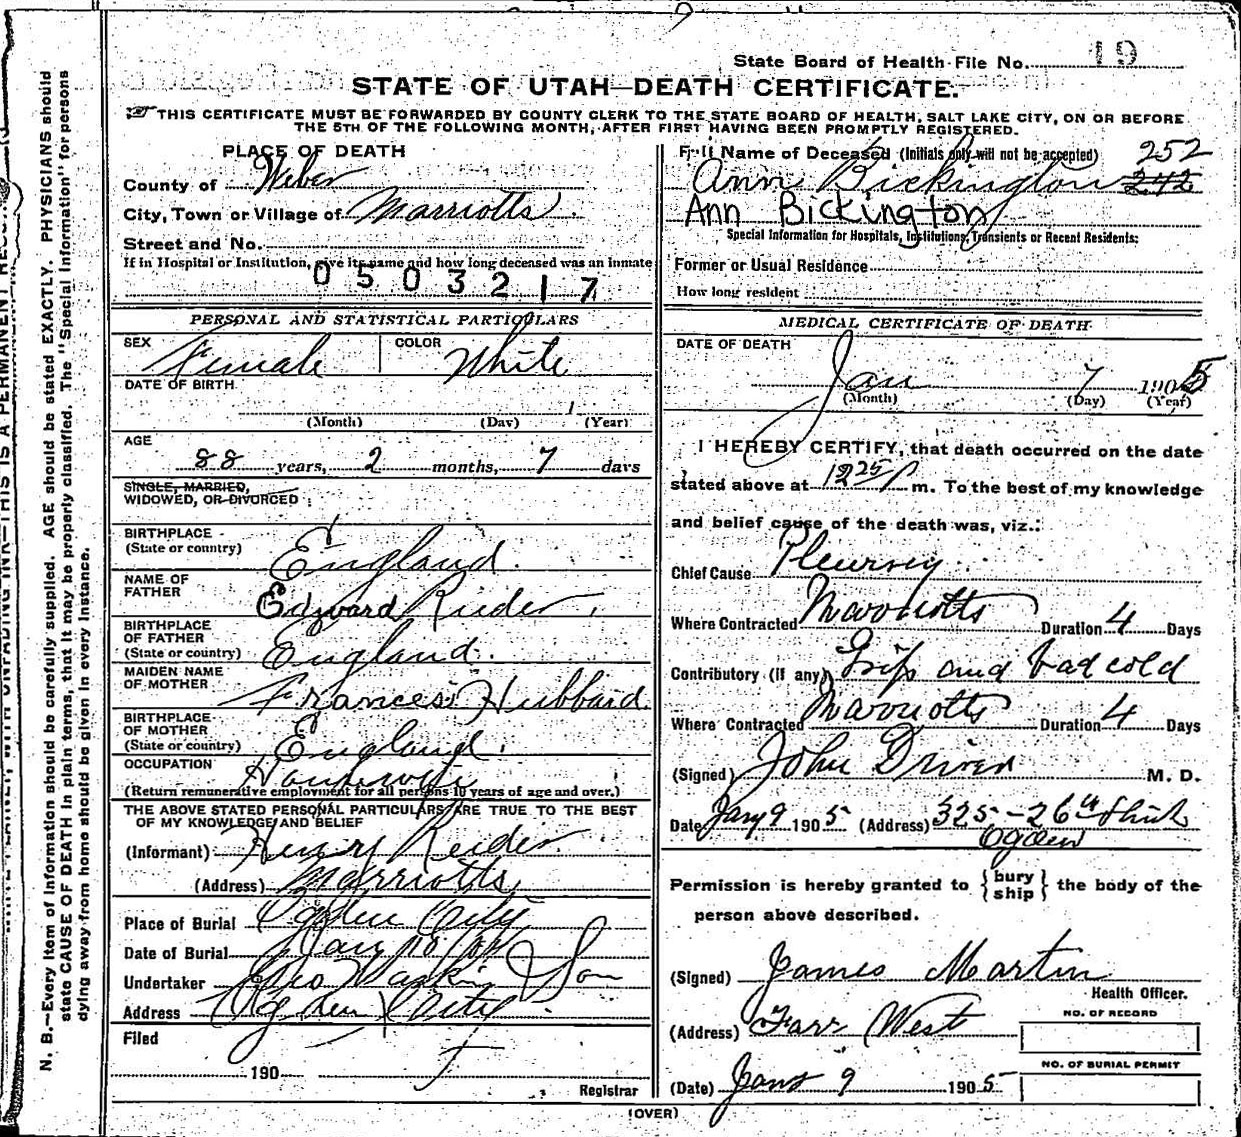 State Board of Health File No. 19
STATE OF UTAH—DEATH CERTIFICATE.
THIS CERTIFICATE MUST BE FORWARDED BY COUNTY CLERK TO THE STATE BOARD OF HEALTH, SALT LAKE CITY, ON OR BEFORE
THE 5TH OF THE FOLLOWING MONTH, AFTER FIRST HAVING BEEN PROMPTLY REGISTERED.
PLACE OF DEATH
County of Weber
City, Town or Village of Marriotts
Street and No.
If in Hospital or Institution, give its name and how long deceased was an inmate
0503217
PERSONAL AND STATISTICAL PARTICULARS
SEX Female COLOR White
DATE OF BIRTH
(Month) (Day) (Year)
AGE
88 years, 2 months, 7 days
SINGLE, MARRIED,
WIDOWED, OR DIVORCED
BIRTHPLACE
(State or country) England.
NAME OF
FATHER Edward Rieder
BIRTHPLACE
OF FATHER
(State or country) England.
MAIDEN NAME
OF MOTHER Frances Hubbard
BIRTHPLACE
OF MOTHER
(State or country) England.
OCCUPATION Housewife
(Return remunerative employment for all persons 10 years of age and over.)
THE ABOVE STATED PERSONAL PARTICULARS ARE TRUE TO THE BEST
OF MY KNOWLEDGE AND BELIEF
(Informant) Henry Reider
(Address) Marriotts
Place of Burial Ogden City
Date of Burial Jany 10
Undertaker Son
Address Ogden City
Filed
190
Registrar
Full Name of Deceased (Initials only will not be accepted) 252
Ann Bickington 242
Ann Bickington
Special Information for Hospitals, Institutions, Transients or Recent Residents:
Former or Usual Residence
How long resident
MEDICAL CERTIFICATE OF DEATH
DATE OF DEATH
Jan 7 1905
(Month) (Day) (Year)
I HEREBY CERTIFY, that death occurred on the date
stated above at 12 25 P m. To the best of my knowledge
and belief cause of the death was, viz.:
Chief Cause Pleurisy
Where Contracted Marriotts Duration 4 Days
Contributory (if any) Grip and bad cold
Where Contracted Marriotts Duration 4 Days
(Signed) John Driver M. D.
Date Jany 9 1905 (Address) 325-26th
Ogden
Permission is hereby granted to {bury ship} the body of the
person above described.
(Signed) James Martin
Health Officer.
(Address) Farr West
NO. OF RECORD
NO. OF BURIAL PERMIT
(Date) Jany 9 1905
(OVER)
N. B.—Every item of information should be carefully supplied. AGE should be stated EXACTLY. PHYSICIANS should
state CAUSE OF DEATH in plain terms, that it may be properly classified. The "Special Information" for persons
dying away from home should be given in every instance.
WRITE PLAINLY, WITH UNFADING INK—THIS IS A PERMANENT RECORD